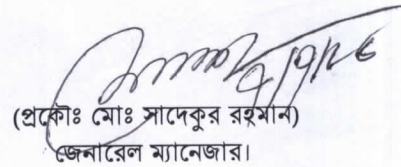 (প্রকৌঃ মোঃ সাদেকুর রহমান)
জেনারেল ম্যানেজার।